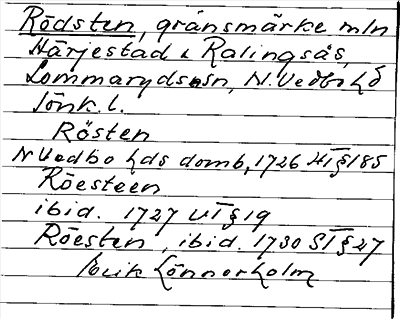 Rödsten, gränsmärke mln
Härjestad & Ralingsås,
Lommaryds sn, N. Vedbo hd
Jönk. l.
Rösten
N Vedbo hds domb, 1726 HT § 185
Röesteen
ibid. 1727 VT § 19
Röesten, ibid. 1730 ST § 27
Erik Lönnerholm